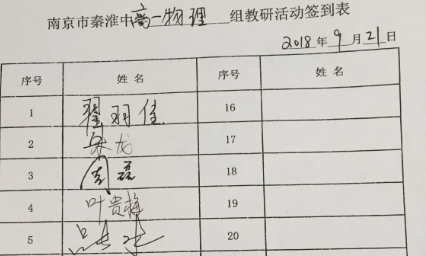 南京市秦淮中高一物理组教研活动签到表
2018年9月21日
序号 姓名 序号 姓名
1 翟羽佳 16
2 朱龙 17
3 周磊 18
4 叶贵梅 19
5 20